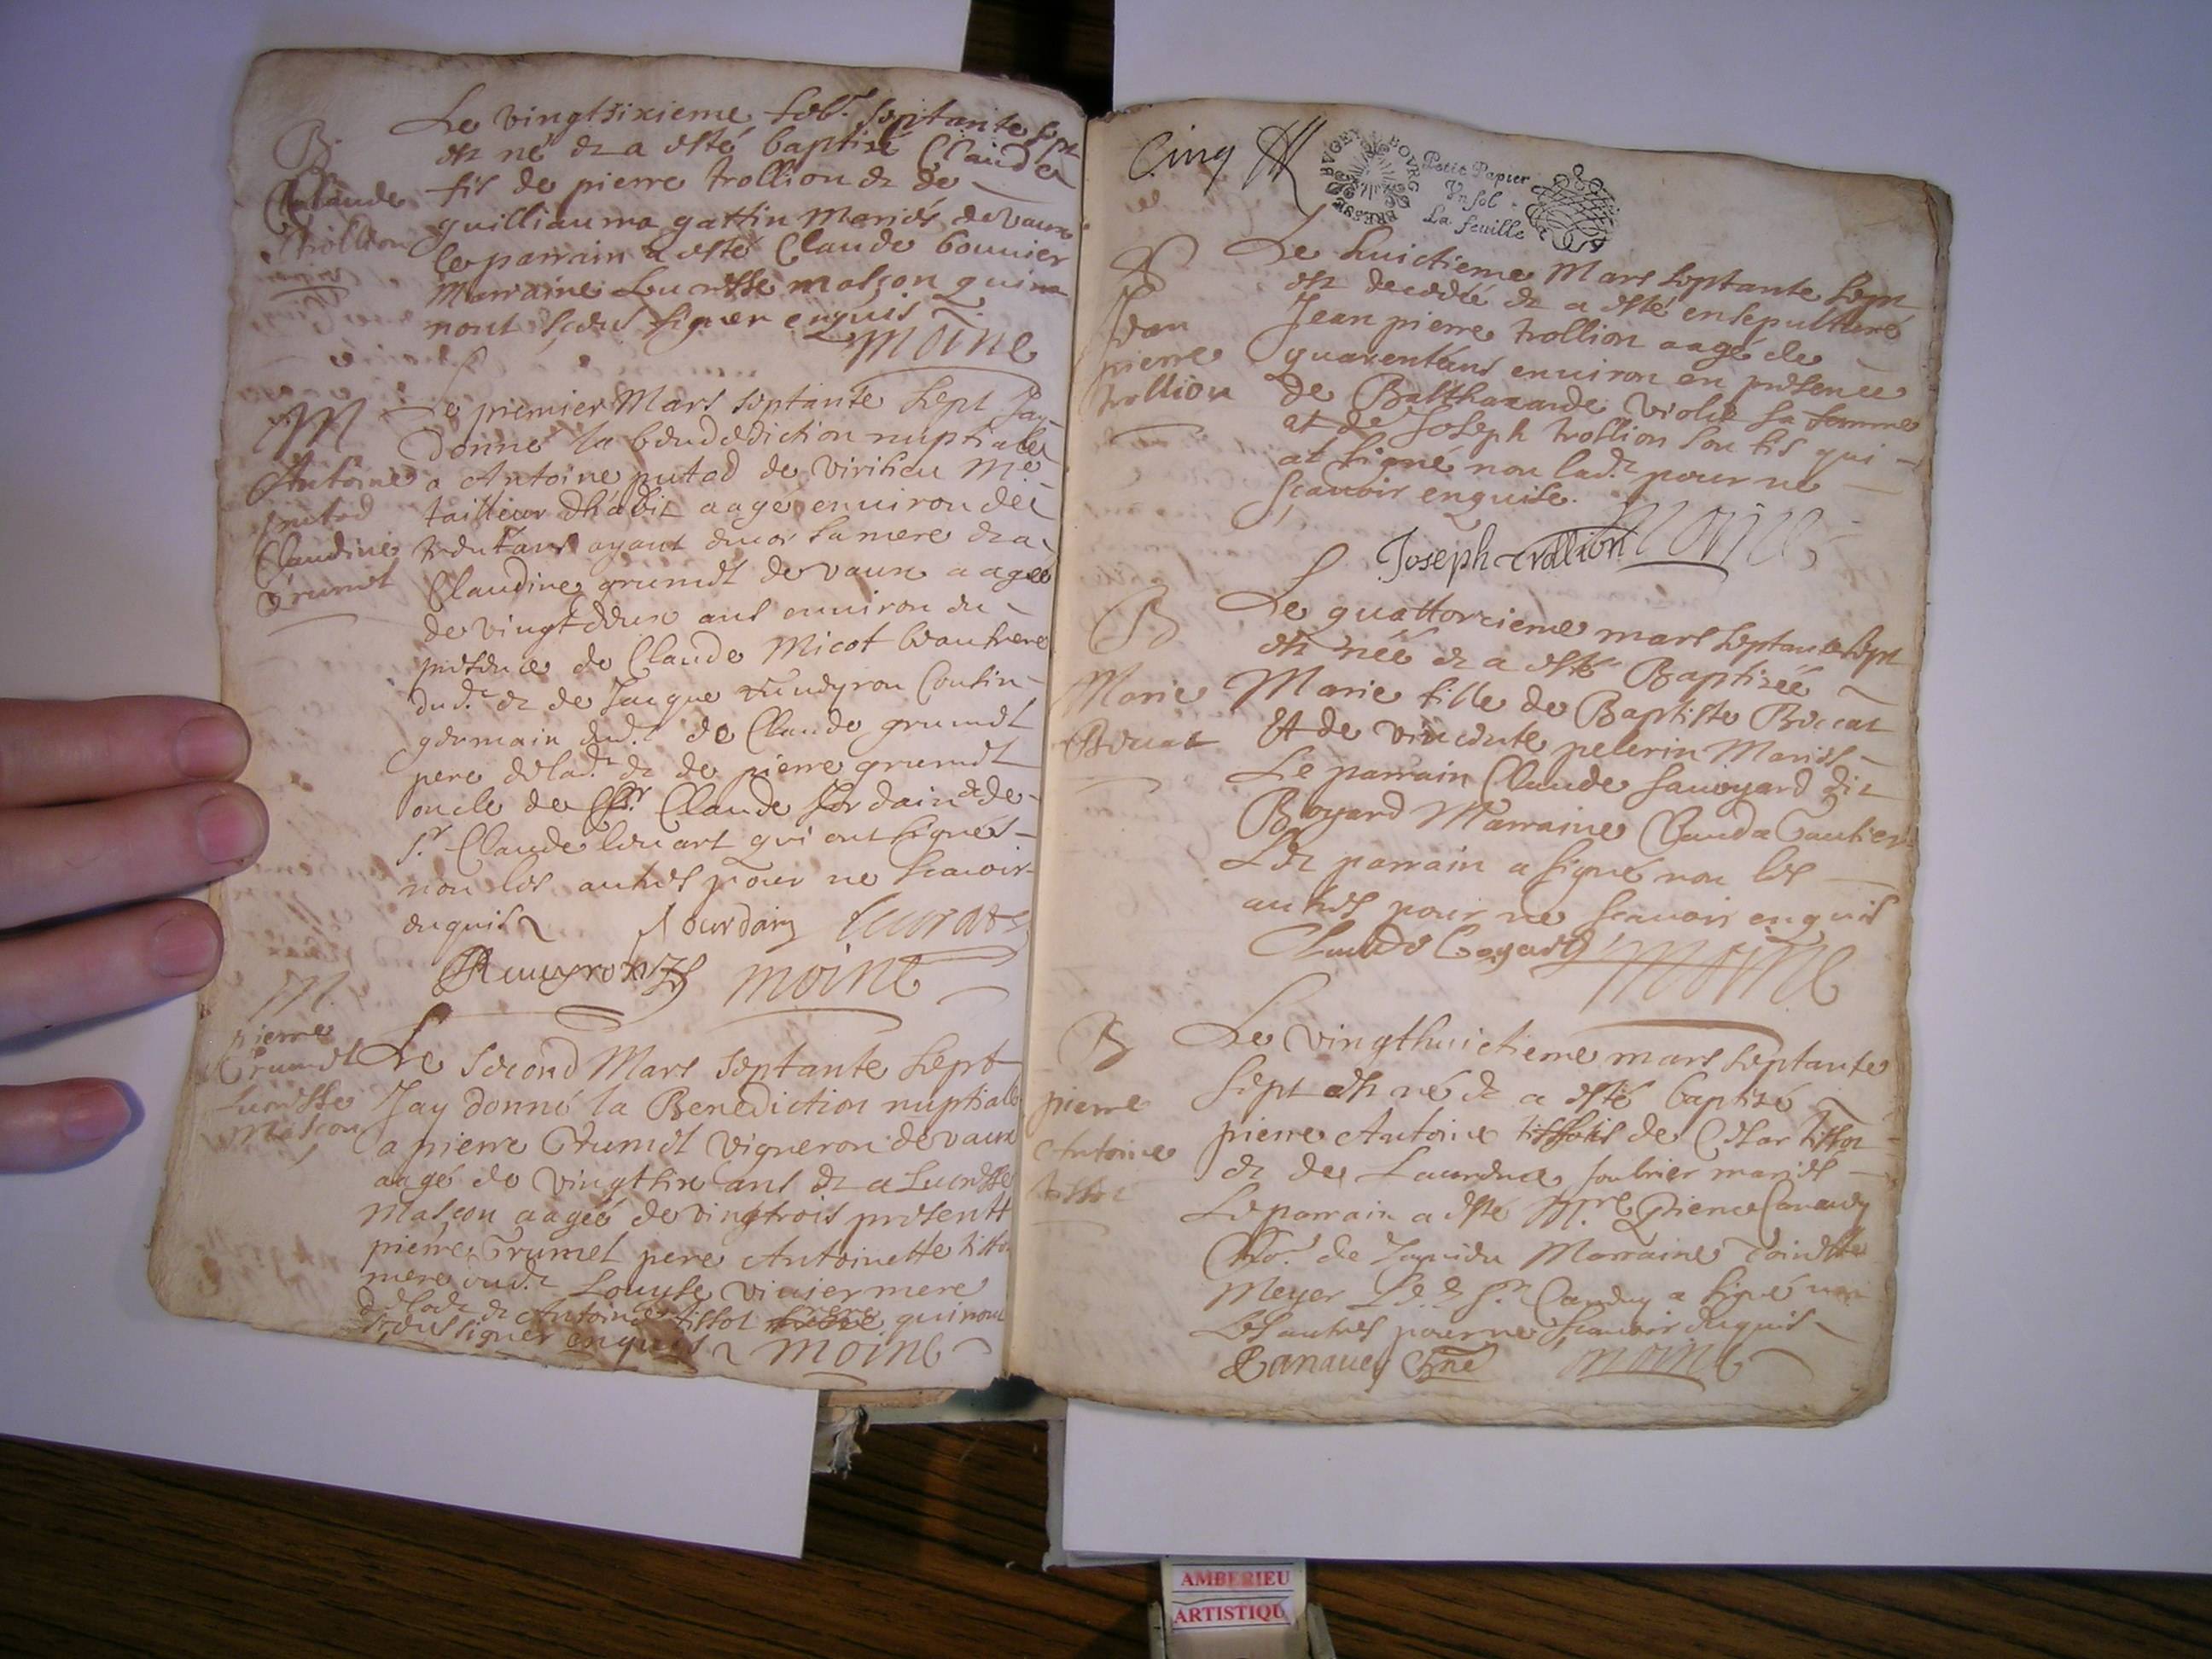 B
Claude
trollion
Le vingtsixieme feb.r septante sept
est né et a esté baptisé Claude
fils de pierre trollion et de
guilliauma gattin Mariés de vaux
le parrain a esté Claude bouvier
Marraine Lucresse masson qui
nont sceus signer enquis
moine
M
Antoine
putod
Claudine
Grumet
Le premier Mars septante sept Jay
donné la benedediction nuptiale
a Antoine putod de virilieu M.e
tailleur dhabit aagé environ de
trentans ayant encor sa mere et a
Claudine grumet de vaux aagée
de vingtdeux ans environ en
presence de Claude Micot beaufrere
dud.t et de Jacque Cousin
germain dud.t de Claude grumet
pere delad.te et de pierre grumet
oncle de Claude Jordain et de
s.r Claude louart qui ont signés
non les autres pour ne scavoir
enquis
Jourdain
moine
M.
pierre
Grumet
Lucresse
Mascon
Le second Mars septante sept
Jay donné la Benediction nuptiale
a pierre Grumet vigneron de vaux
aagé de vingtsix ans et a Lucresse
Mascon aagée de vingtrois presentt
pierre Grumet pere Antoinette
mere dud.t Louyse vivier mere
delad.te et Antoine tissot frere qui nont
sceus signer enquis
moine
Cinq
BRESSE BVGEY BOVRG
Petit Papier
Vn sol
La feuille
Jean
pierre
trollion
Le huictieme Mars septante sept
est decedé et a esté ensepulturé
Jean pierre trollion aagé de
quarentans environ en presence
de Balthazarde violet sa femme
et de Joseph trollion son fils qui
at signé non lad.te pour ne
sçavoir enquise.
Joseph trollion
Moine
B
Marie
Bocat
Le quattorzieme mars septante sept
est née et a esté Baptisée
Marie fille de Baptiste Boccat
Et de vincente pelerin Mariés
Le parrain Claude savoyard dit
Boyard Marraine Clauda Gautier
Led.t parrain a signé non les
autres pour ne scavoir enquis
Claude boyard
moine
B
pierre
Antoine
tissot
Le vingthuictieme mars septante
sept est né et a esté baptizé
pierre Antoine fils de Cesar tissot
et de Laurence soubrier mariés
Le parrain a esté M.re Pierre Canavey
de Marraine
Meyer Led.t s.r Canavey a signé non
Les autres pour ne scavoir enquis
Canavey
moine
AMBERIEU
ARTISTIQU